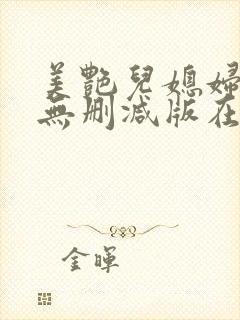 美艷兒媳婦
無刪減版在
金暉